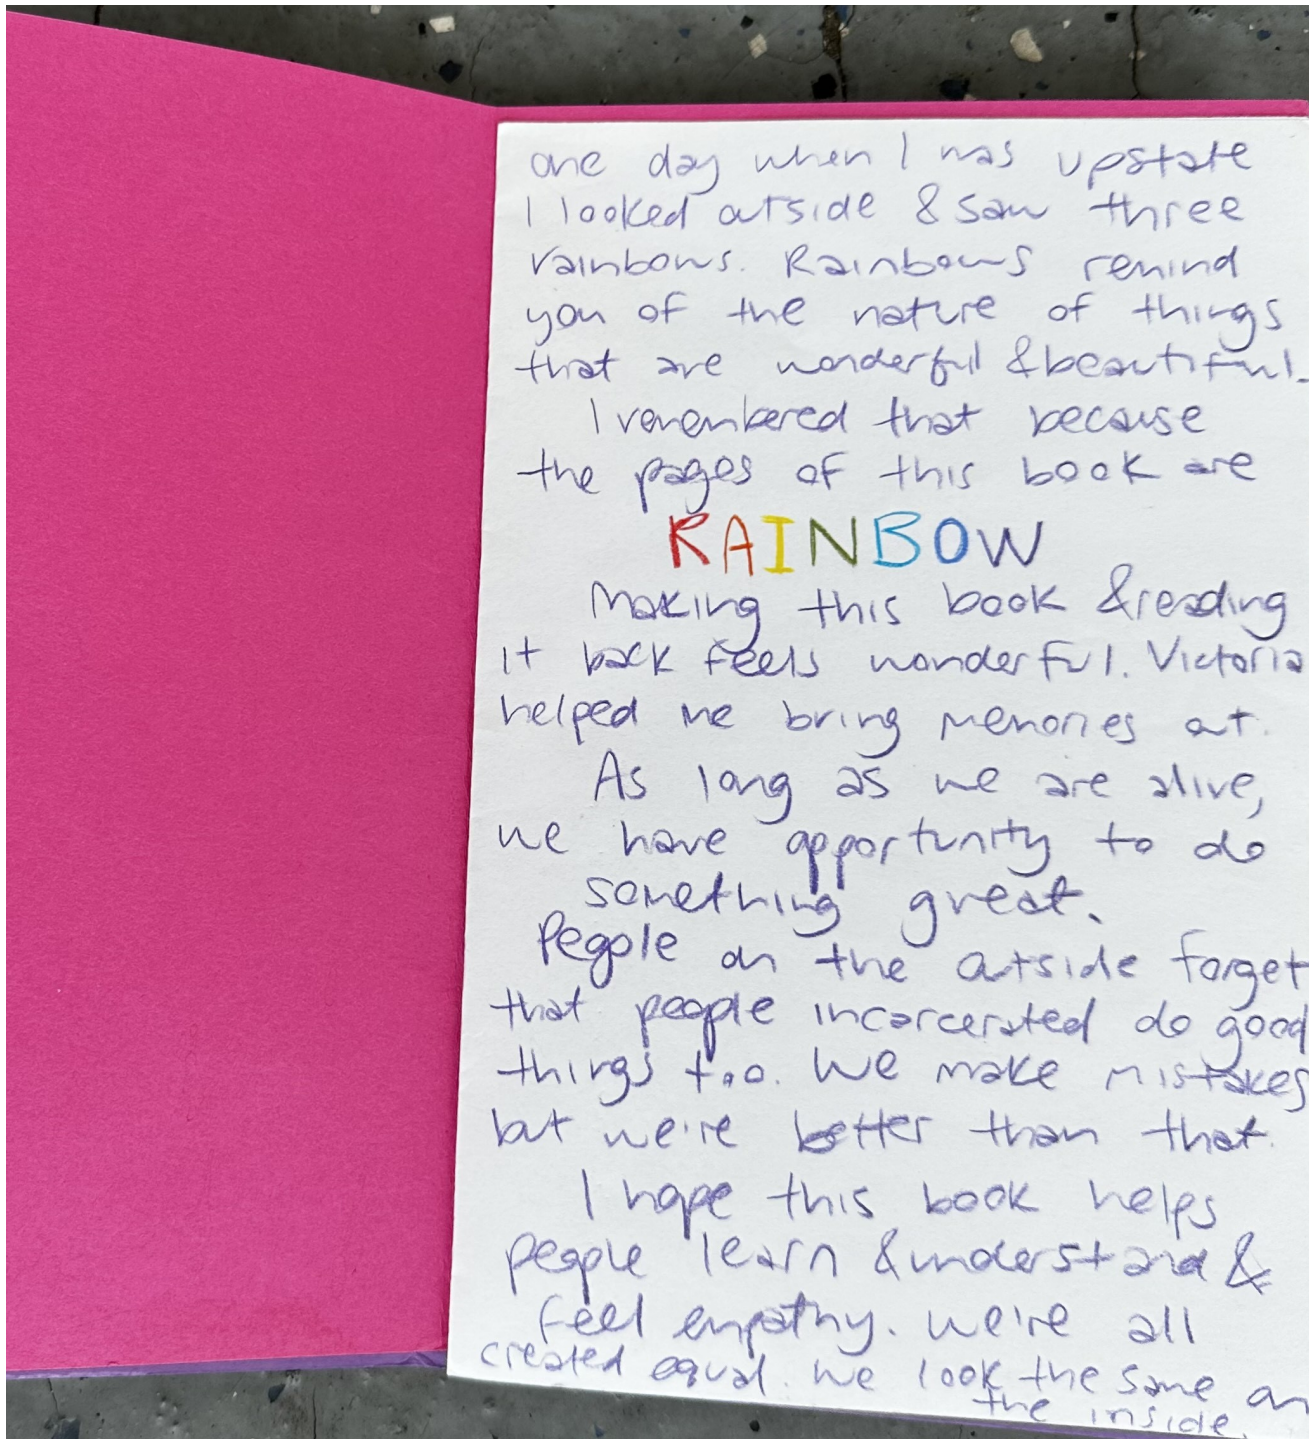 one day when I was upstate
I looked outside & saw three
rainbows. Rainbows remind
you of the nature of things
that are wonderful & beautiful.
I remembered that because
the pages of this book are
RAINBOW
Making this book & reading
it back feels wonderful. Victoria
helped me bring memories out.
As long as we are alive,
we have opportunity to do
something great.
People on the outside forget
that people incarcerated do good
things too. We make mistakes
but we're better than that.
I hope this book helps
people learn & understand &
feel empathy. We're all
created equal. We look the same on
the inside.